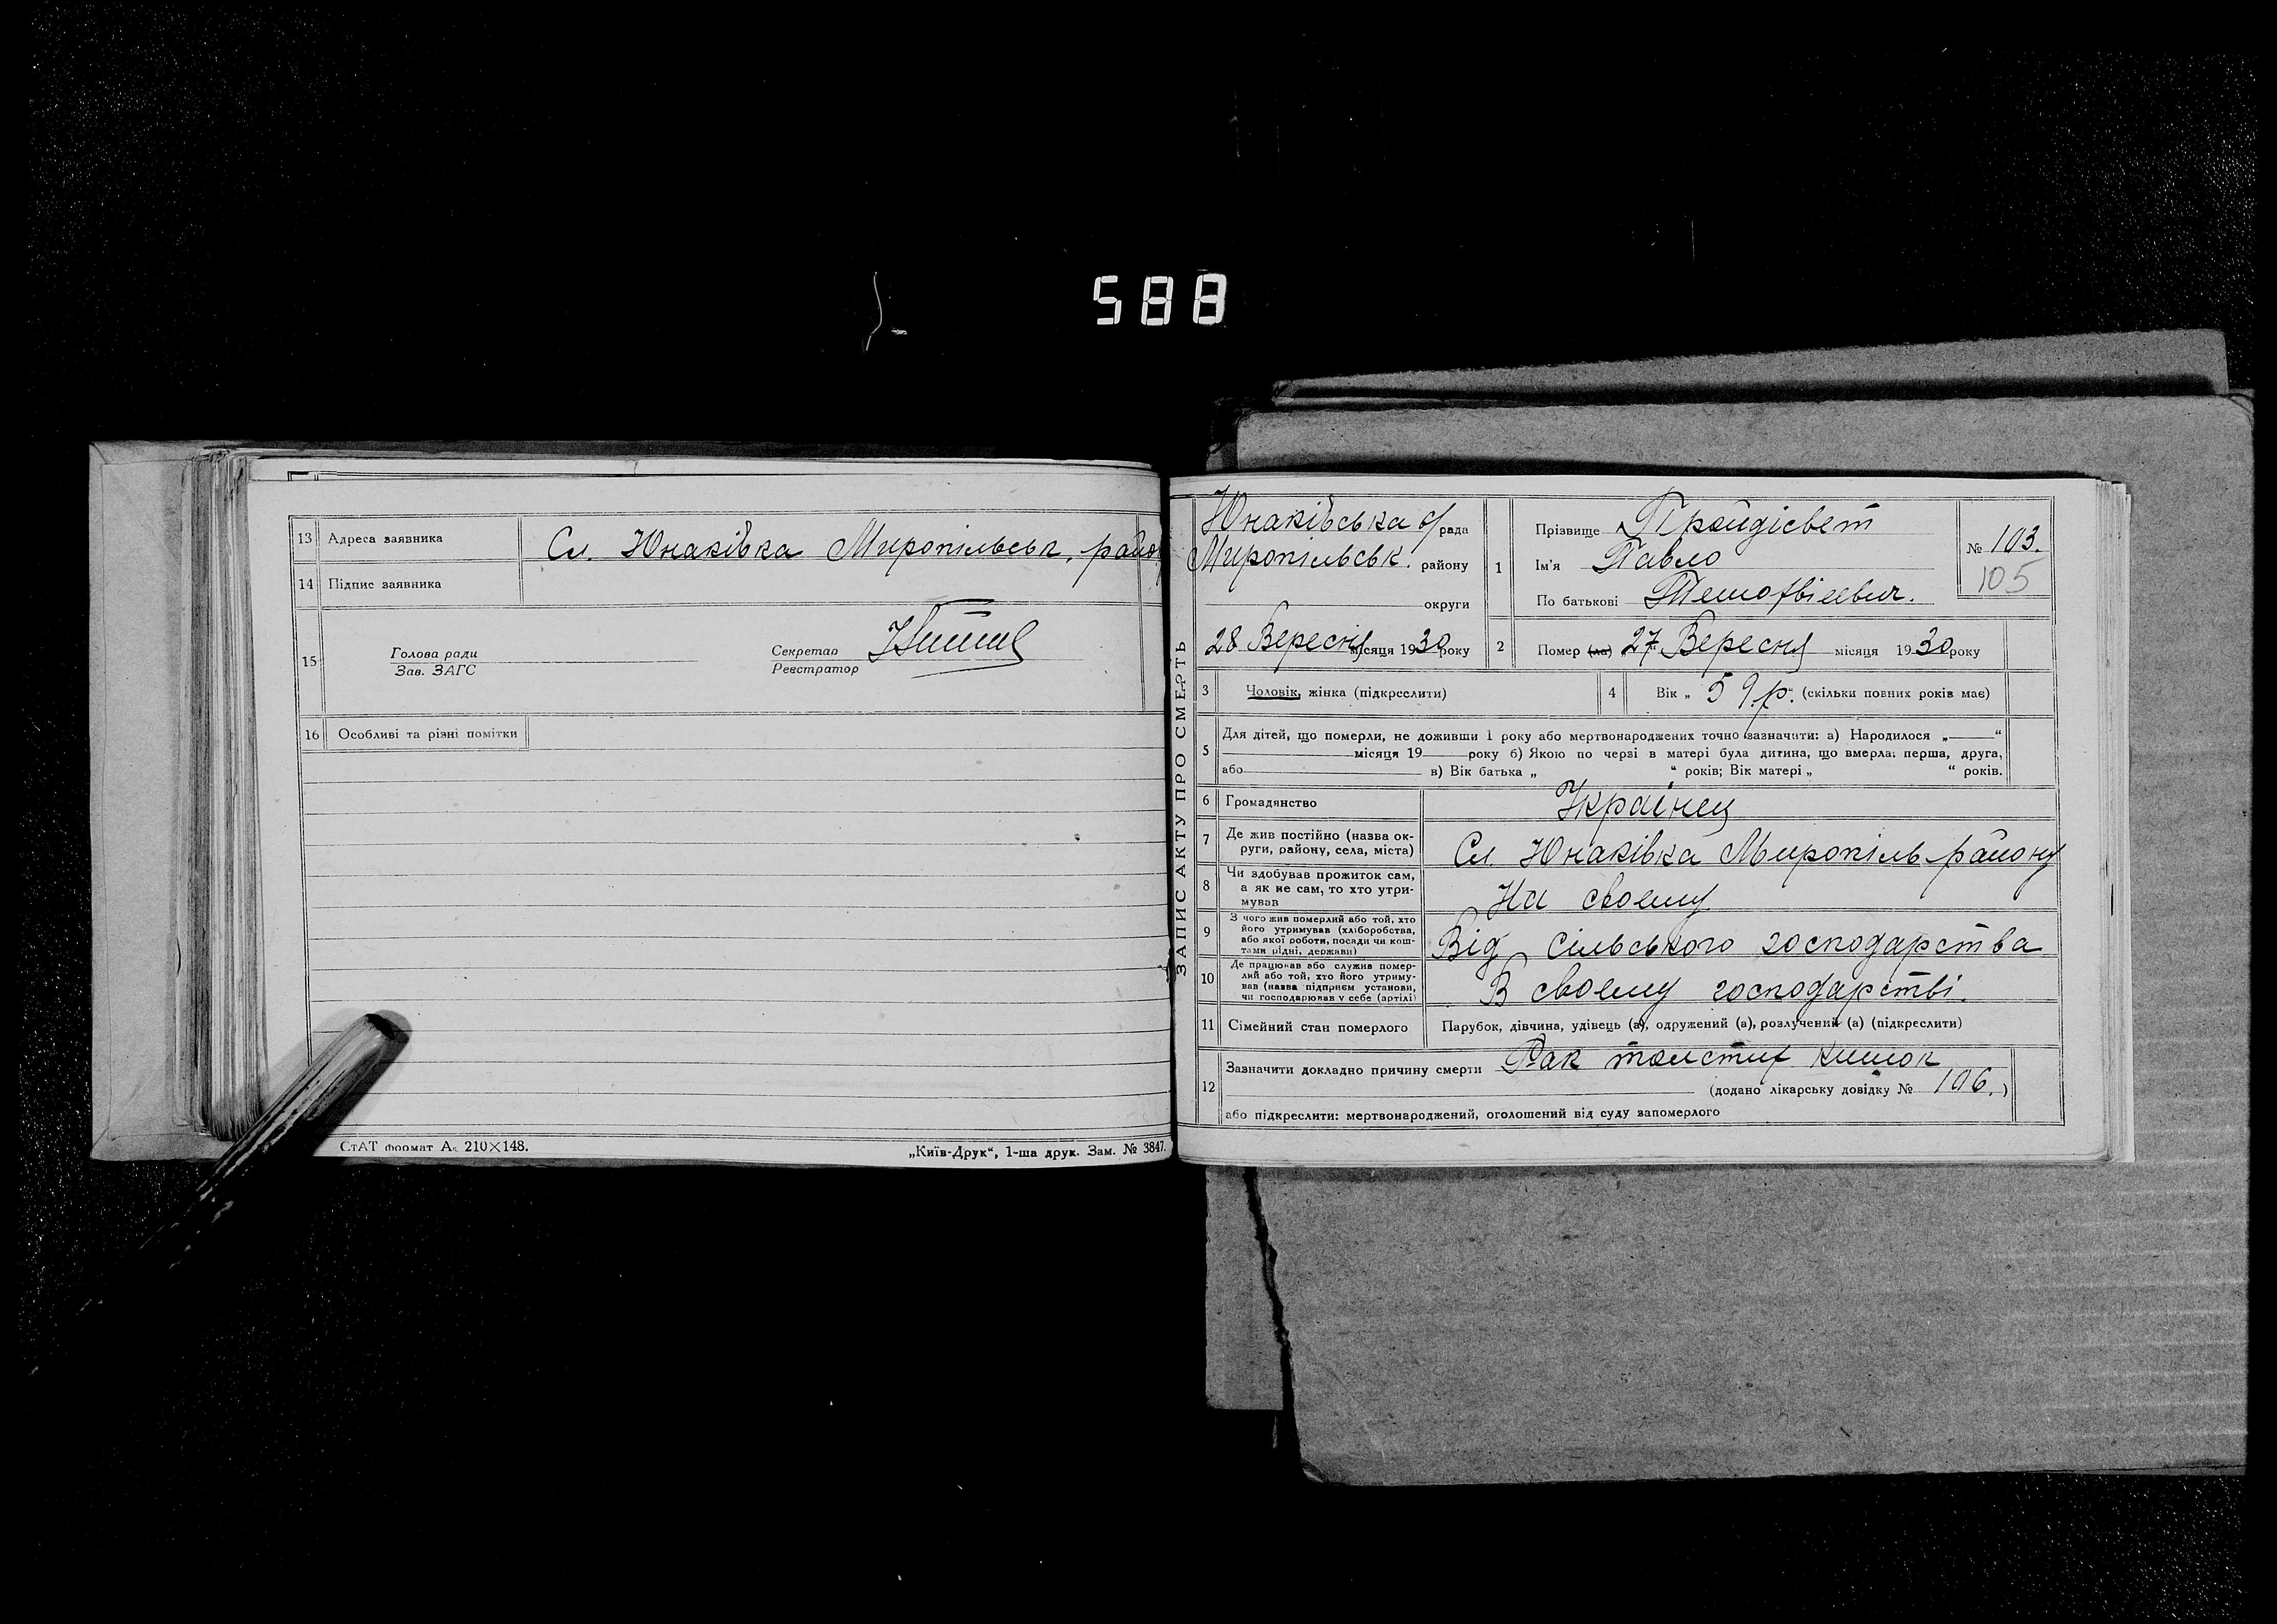 588
13 Адреса заявника Сл. Юнаківка Миропільськ. райо
14 Підпис заявника
15 Голова ради
Зав. ЗАГС
Секретар
Реєстратор
16 Особливі та різні помітки
СтАТ формат А₅ 210×148.
„Київ-Друк“, 1-ша друк. Зам. № 3847.
ЗАПИС АКТУ ПРО СМЕРТЬ
Юнаківська с/рада
Миропільськ. району
округи
28 Вересня місяця 1930 року
1 Прізвище Пройдісвет
Ім'я Павло
По батькові
№ 103.
105
2 Помер (ла) „27“ Вересня місяця 1930 року
3 Чоловік, жінка (підкреслити)
4 Вік „59 р.“ (скільки повних років має)
5 Для дітей, що померли, не доживши 1 року або мертвонароджених точно зазначити: а) Народилося „ “
місяця 19 року б) Якою по черзі в матері була дитина, що вмерла: перша, друга,
або в) Вік батька „ “ років; Вік матері „ “ років.
6 Громадянство Украінец
7 Де жив постійно (назва ок-
руги, району, села, міста) Сл. Юнаківка Миропіль району
8 Чи здобував прожиток сам,
а як не сам, то хто утри-
мував На своему
9 З чого жив померлий або той, хто
його утримував (хліборобства,
або якої роботи, посади чи кош-
тами рідні, держави) Від сільського господарства
10 Де працював або служив помер-
лий або той, хто його утриму-
вав (назва підприєм установи,
чи господарював у себе (артілі) В своему господарстві.
11 Сімейний стан померлого Парубок, дівчина, удівець (а), одружений (а), розлучений (а) (підкреслити)
12 Зазначити докладно причину смерти Рак толстих кишок
(додано лікарську довідку № 106.)
або підкреслити: мертвонароджений, оголошений від суду запомерлого